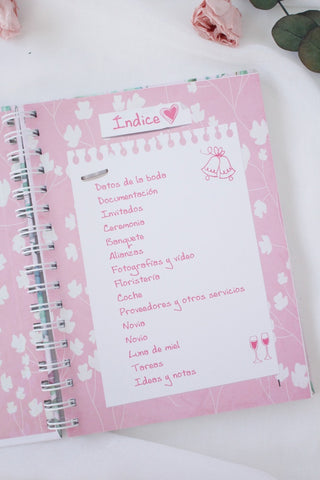 Índice
Datos de la boda
Documentación
Invitados
Ceremonia
Banquete
Alianzas
Fotografías y vídeo
Floristería
Coche
Proveedores y otros servicios
Novia
Novio
Luna de miel
Tareas
Ideas y notas